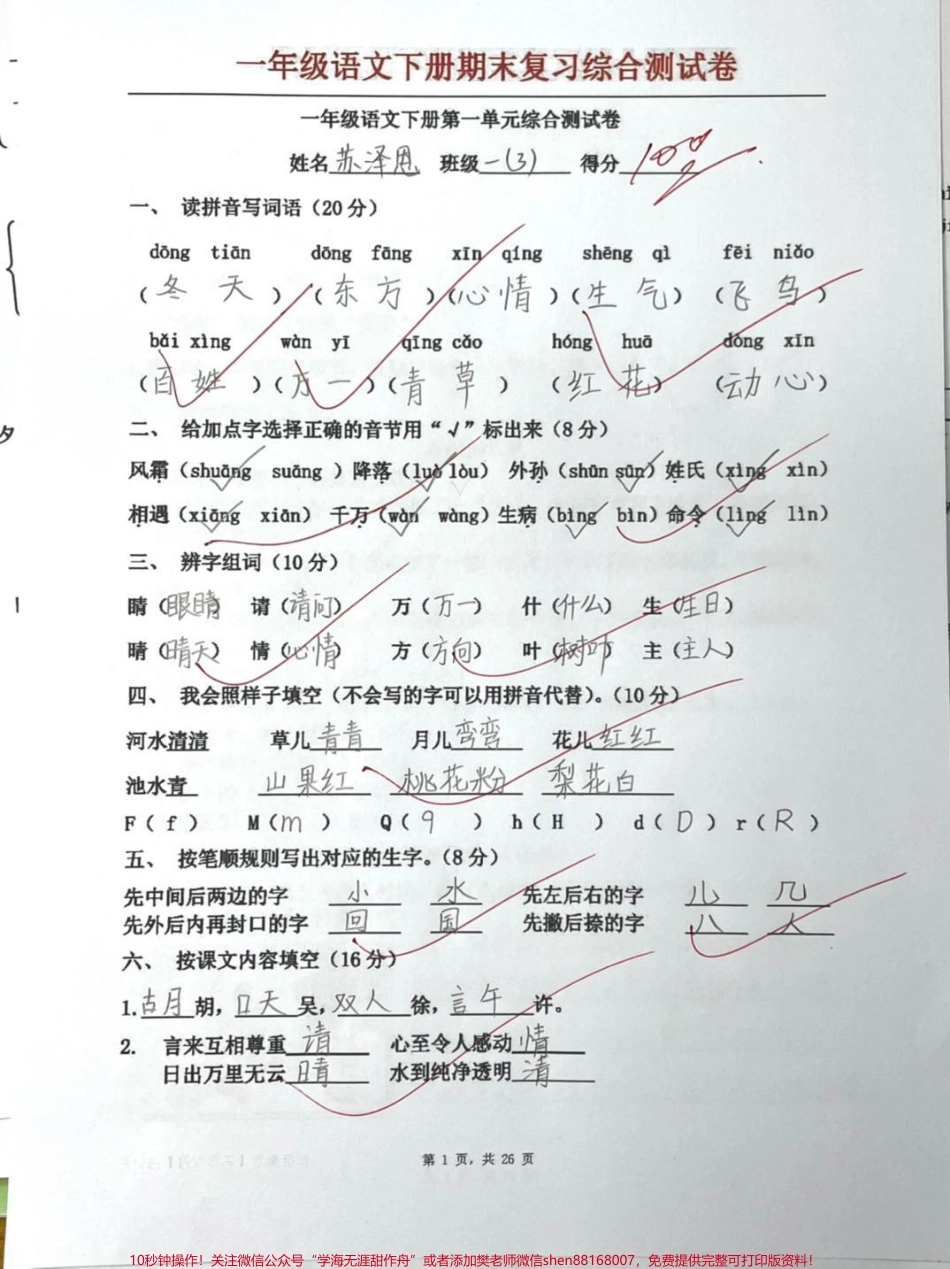 一年级语文下册期末复习综合测试卷
一年级语文下册第一单元综合测试卷
姓名 苏泽恩 班级 一(3) 得分 100
一、 读拼音写词语（20分）
dōng tiān dōng fāng xīn qíng shēng qì fēi niǎo
（冬 天）（东 方）（心 情）（生 气）（飞 鸟）
bǎi xìng wàn yī qīng cǎo hóng huā dòng xīn
（百 姓）（万 一）（青 草）（红 花）（动 心）
二、 给加点字选择正确的音节用“√”标出来（8分）
风霜（shuāng√ suāng）降落（luò√ lòu） 外孙（shūn sūn√）姓氏（xìng√ xìn）
相遇（xiāng√ xiān） 千万（wàn√ wàng）生病（bìng√ bìn）命令（lìng√ lìn）
三、 辨字组词（10分）
睛（眼睛） 请（请问） 万（万一） 什（什么） 生（生日）
晴（晴天） 情（心情） 方（方向） 叶（树叶） 主（主人）
四、 我会照样子填空（不会写的字可以用拼音代替）。（10分）
河水清清 草儿青青 月儿弯弯 花儿红红
池水青 山果红 桃花粉 梨花白
F（f） M（m） Q（q） h（H） d（D） r（R）
五、 按笔顺规则写出对应的生字。（8分）
先中间后两边的字 小 水 先左后右的字 儿 几
先外后内再封口的字 回 国 先撇后捺的字 八 人
六、 按课文内容填空（16分）
1.古月胡，口天吴，双人徐，言午许。
2. 言来互相尊重请 心至令人感动情
日出万里无云晴 水到纯净透明清
第 1 页，共 26 页
10秒钟操作！关注微信公众号“学海无涯甜作舟”或者添加樊老师微信shen88168007，免费提供完整可打印版资料！